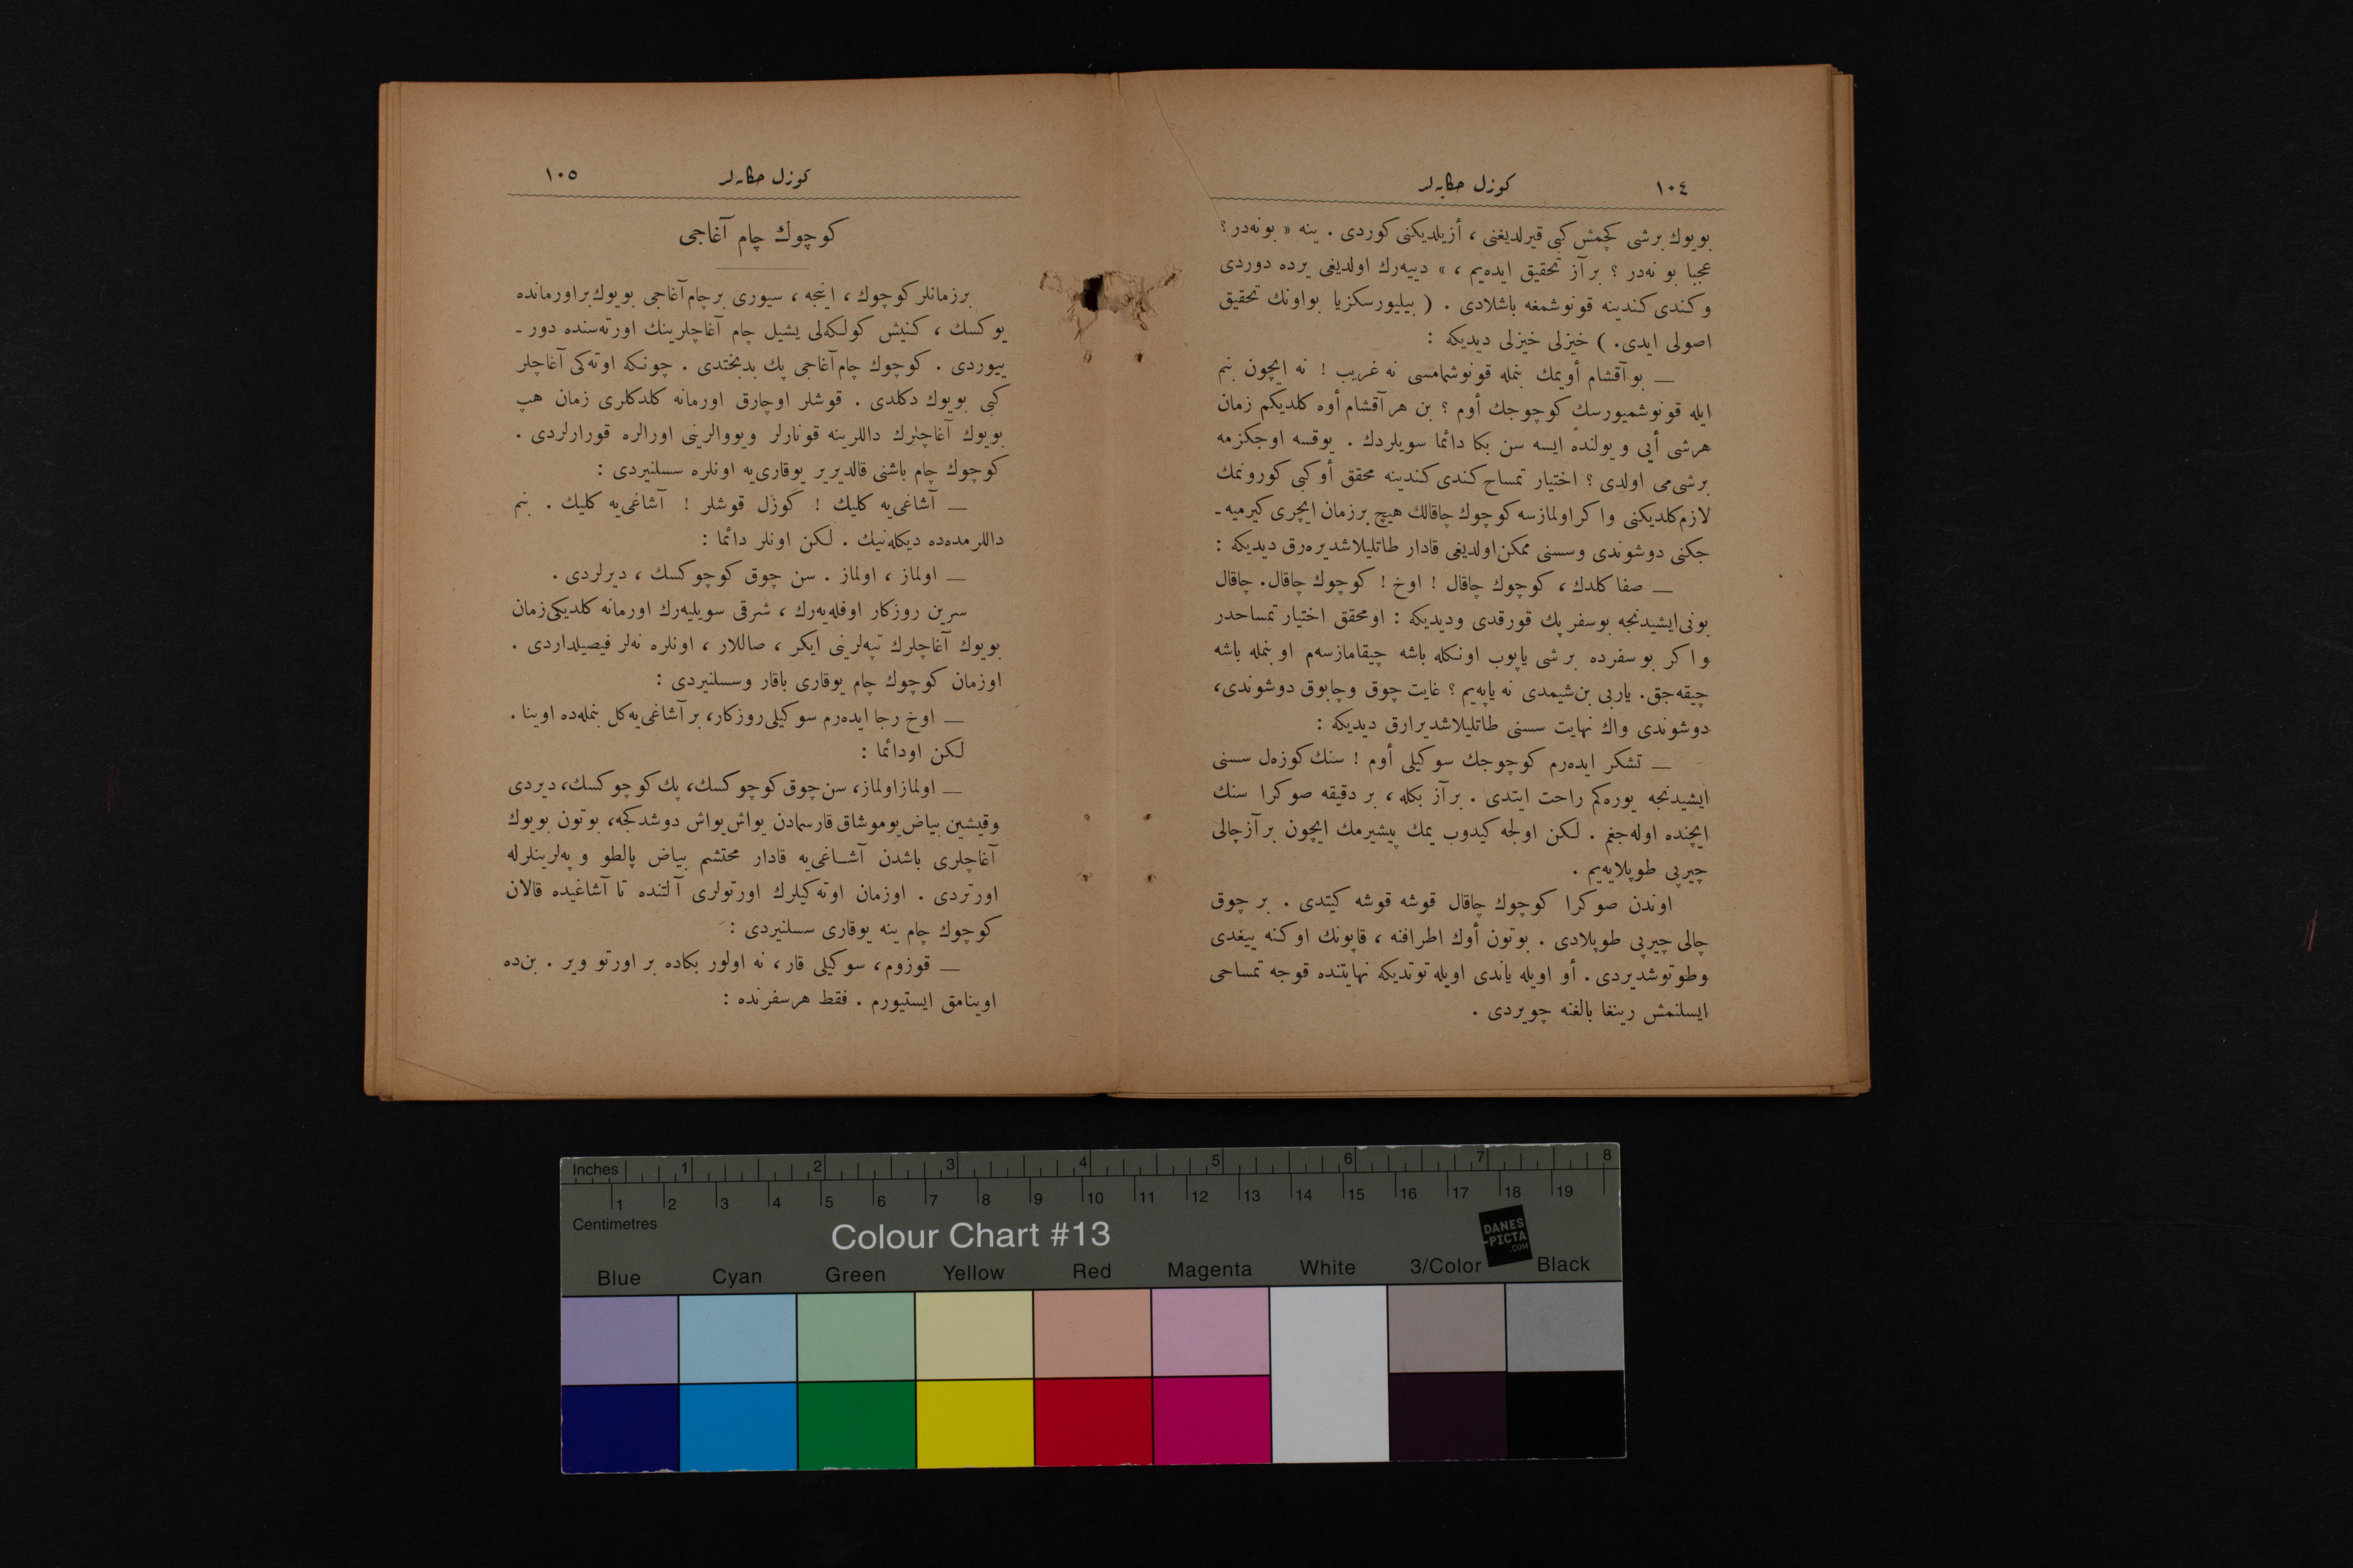 ١٠٤
كوزل حكايه‌لر
بويوك برشى كچمش كبى قيرلديغنى ، أزيلديكنى كوردى . ينه « بونه‌در ؟
عجبا بو نه‌در ؟ بر آز تحقيق ايده‌يم ، » دييه‌رك اولديغى يرده دوردى
و كندى كندينه قونوشمغه باشلادى . ( بيليورسكزيا بواونك تحقيق
اصولى ايدى. ) خيزلى خيزلى ديديكه :
— بو آقشام أويمك بنمله قونوشمامسى نه غريب ! نه ايچون بنم
ايله قونوشميورسك كوچوجك أوم ؟ بن هر آقشام أوه كلديكم زمان
هرشى أيى و يولنده ايسه سن بكا دائما سويلردك . يوقسه اوجكزمه
برشى‌مى اولدى ؟ اختيار تمساح كندى كندينه محقق أو كبى كورونمك
لازم‌كلديكنى وا كراولمازسه كوچوك چاقالك هيچ برزمان ايچرى كيرميه -
جكنى دوشوندى وسسنى ممكن‌اولديغى قادار طاتليلاشديره‌رق ديديكه :
— صفا كلدك ، كوچوك چاقال ! اوخ ! كوچوك چاقال. چاقال
بونى‌ايشيدنجه بوسفر پك قورقدى وديديكه : اومحقق اختيار تمساحدر
وا كر بو سفرده برشى ياپوب اونكله باشه چيقامازسه‌م او بنمله باشه
چيقه‌جق. ياربى بن‌شيمدى نه ياپه‌يم ؟ غايت چوق وچابوق دوشوندى،
دوشوندى واك نهايت سسنى طاتليلاشديرارق ديديكه :
— تشكر ايده‌رم كوچوجك سوكيلى أوم ! سنك كوزه‌ل سسنى
ايشيدنجه يوره‌كم راحت ايتدى . برآز بكله ، بر دقيقه صوكرا سنك
ايچنده اوله‌جغم . لكن اولجه كيدوب يمك پيشيرمك ايچون برآزچالى
چيرپى طوپلايه‌يم .
اوندن صوكرا كوچوك چاقال قوشه قوشه كيتدى . بر چوق
چالى چيرپى طوپلادى . بوتون أوك اطرافنه ، قاپونك اوكنه ييغدى
وطوتوشديردى . أو اويله ياندى اويله توتديكه نهايتنده قوجه تمساحى
ايسلنمش رينغا بالغنه چويردى .
كوزل حكايه‌لر
١٠٥
كوچوك چام آغاجى
برزمانلر كوچوك ، اينجه ، سيورى برچام‌آغاجى بويوك‌براورمانده
يوكسك ، كنيش كولكه‌لى يشيل چام آغاچلرينك اورته‌سنده دور -
ييوردى . كوچوك چام‌آغاجى پك بدبختدى . چونكه اوته‌كى آغاچلر
كبى بويوك دكلدى . قوشلر اوچارق اورمانه كلدكلرى زمان هپ
بويوك آغاچلرك داللرينه قونارلر ويووالرينى اورالره قورارلردى .
كوچوك چام باشنى قالديرير يوقارى‌يه اونلره سسلنيردى :
— آشاغى‌يه كليك ! كوزل قوشلر ! آشاغى‌يه كليك . بنم
داللرمده‌ده ديكله‌نيك . لكن اونلر دائما :
— اولماز ، اولماز . سن چوق كوچوكسك ، ديرلردى .
سرين روزكار اوفله‌يه‌رك ، شرقى سويليه‌رك اورمانه كلديكى‌زمان
بويوك آغاچلرك تپه‌لرينى ايكر ، صاللار ، اونلره نه‌لر فيصيلداردى .
اوزمان كوچوك چام يوقارى باقار وسسلنيردى :
— اوخ رجا ايده‌رم سوكيلى‌روزكار، بر آشاغى‌يه‌كل بنمله‌ده اوينا .
لكن اودائما :
— اولمازاولماز، سن چوق كوچوكسك، پك كوچوكسك، ديردى
وقيشين بياض‌يوموشاق قارسمادن يواش‌يواش دوشدكجه، بوتون بويوك
آغاچلرى باشدن آشاغى‌يه قادار محتشم بياض پالطو و په‌لرينلرله
اورتردى . اوزمان اوته‌كيلرك اورتولرى آلتنده تا آشاغيده قالان
كوچوك چام ينه يوقارى سسلنيردى :
— قوزوم، سوكيلى قار، نه اولور بكاده بر اورتو وير . بن‌ده
اوينامق ايستيورم . فقط هرسفرنده :
Inches 1 2 3 4 5 6 7 8
1 2 3 4 5 6 7 8 9 10 11 12 13 14 15 16 17 18 19
Centimetres
Colour Chart #13
DANES
-PICTA
.COM
Blue Cyan Green Yellow Red Magenta White 3/Color Black